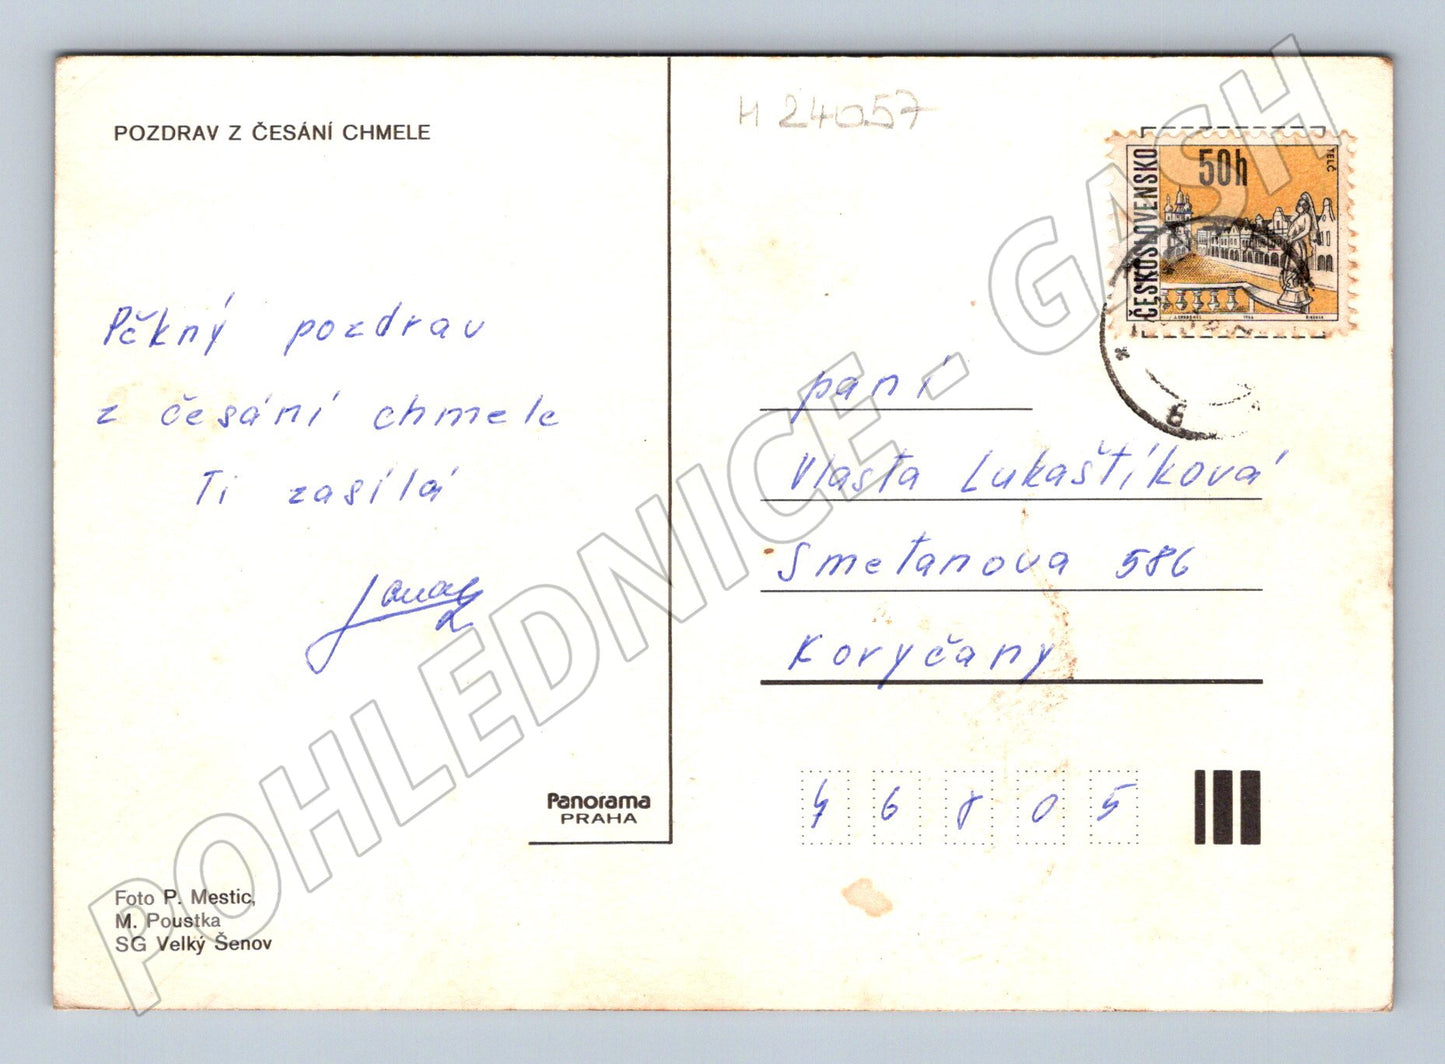 POZDRAV Z ČESÁNÍ CHMELE
Pěkný pozdrav
z česání chmele
Ti zasílá
Panorama
PRAHA
Foto P. Mestic,
M. Poustka
SG Velký Šenov
H 24057
ČESKOSLOVENSKO
50h
TELČ
paní
Vlasta Lukaštíková
Smetanova 586
Koryčany
46805
POHLEDNICE - GASH